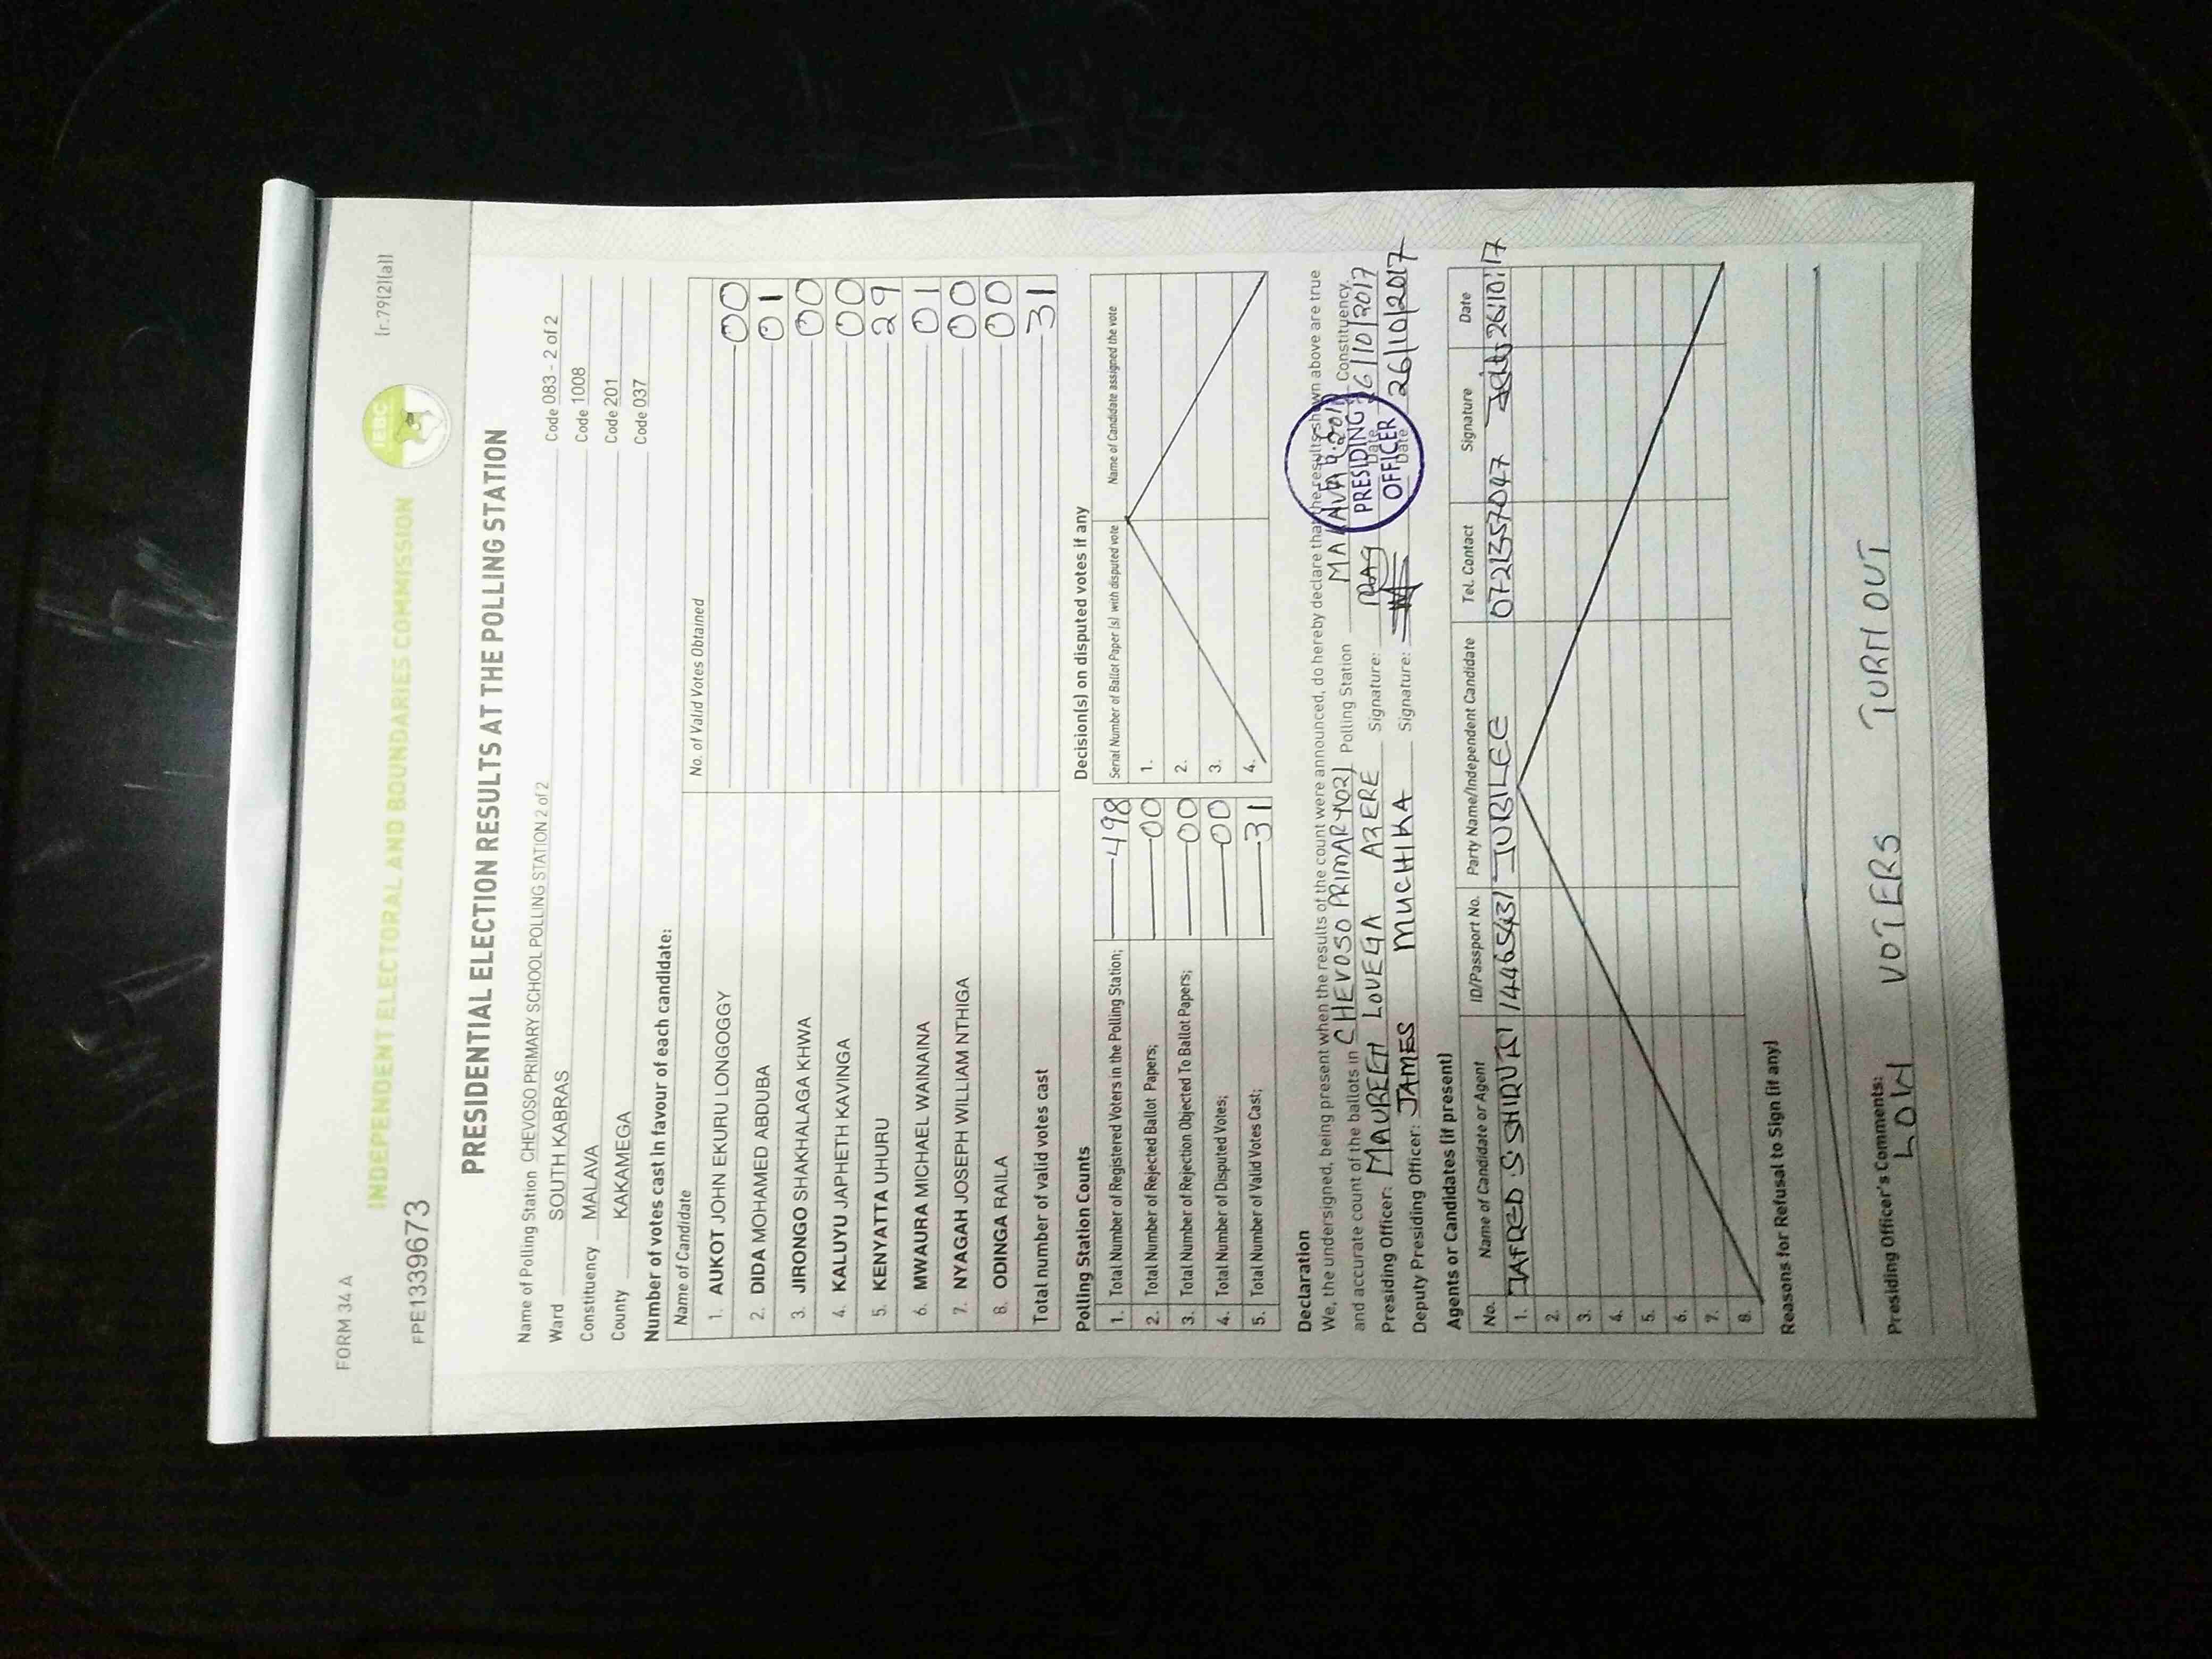 FORM 34 A
[r.79(2)(a)]
IEBC
INDEPENDENT ELECTORAL AND BOUNDARIES COMMISSION
FPE1339673
PRESIDENTIAL ELECTION RESULTS AT THE POLLING STATION
Name of Polling Station CHEVOSO PRIMARY SCHOOL POLLING STATION 2 of 2 Code 083 - 2 of 2
Ward SOUTH KABRAS Code 1008
Constituency MALAVA Code 201
County KAKAMEGA Code 037
Number of votes cast in favour of each candidate:
Name of Candidate No. of Valid Votes Obtained
1. AUKOT JOHN EKURU LONGOGGY 00
2. DIDA MOHAMED ABDUBA 01
3. JIRONGO SHAKHALAGA KHWA 00
4. KALUYU JAPHETH KAVINGA 00
5. KENYATTA UHURU 29
6. MWAURA MICHAEL WAINAINA 01
7. NYAGAH JOSEPH WILLIAM NTHIGA 00
8. ODINGA RAILA 00
Total number of valid votes cast 31
Polling Station Counts
1. Total Number of Registered Voters in the Polling Station; 498
2. Total Number of Rejected Ballot Papers; 00
3. Total Number of Rejection Objected To Ballot Papers; 00
4. Total Number of Disputed Votes; 00
5. Total Number of Valid Votes Cast; 31
Decision(s) on disputed votes if any
Serial Number of Ballot Paper (s) with disputed vote Name of Candidate assigned the vote
1.
2.
3.
4.
Declaration
We, the undersigned, being present when the results of the count were announced, do hereby declare that the results shown above are true
and accurate count of the ballots in CHEVOSO PRIMARY (02) Polling Station MALAVA 201 Constituency.
Presiding Officer: MAUREEN LOVEGA AZERE Signature: Date 26/10/2017
Deputy Presiding Officer: JAMES MUCHIKA Signature: Date 26/10/2017
PRESIDING
OFFICER
Agents or Candidates (if present)
No. Name of Candidate or Agent ID/Passport No. Party Name/Independent Candidate Tel. Contact Signature Date
1. JAFRED S SHIQUTALI 14465431 JUBILEE 0721357047 26/10/17
2.
3.
4.
5.
6.
7.
8.
Reasons for Refusal to Sign (if any)
Presiding Officer's Comments:
LOW VOTERS TURN OUT